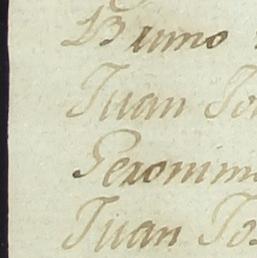 Bruno
Juan Jo
Geronim
Juan Jos